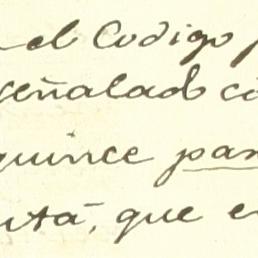 el Codigo
señalado
quince par
que